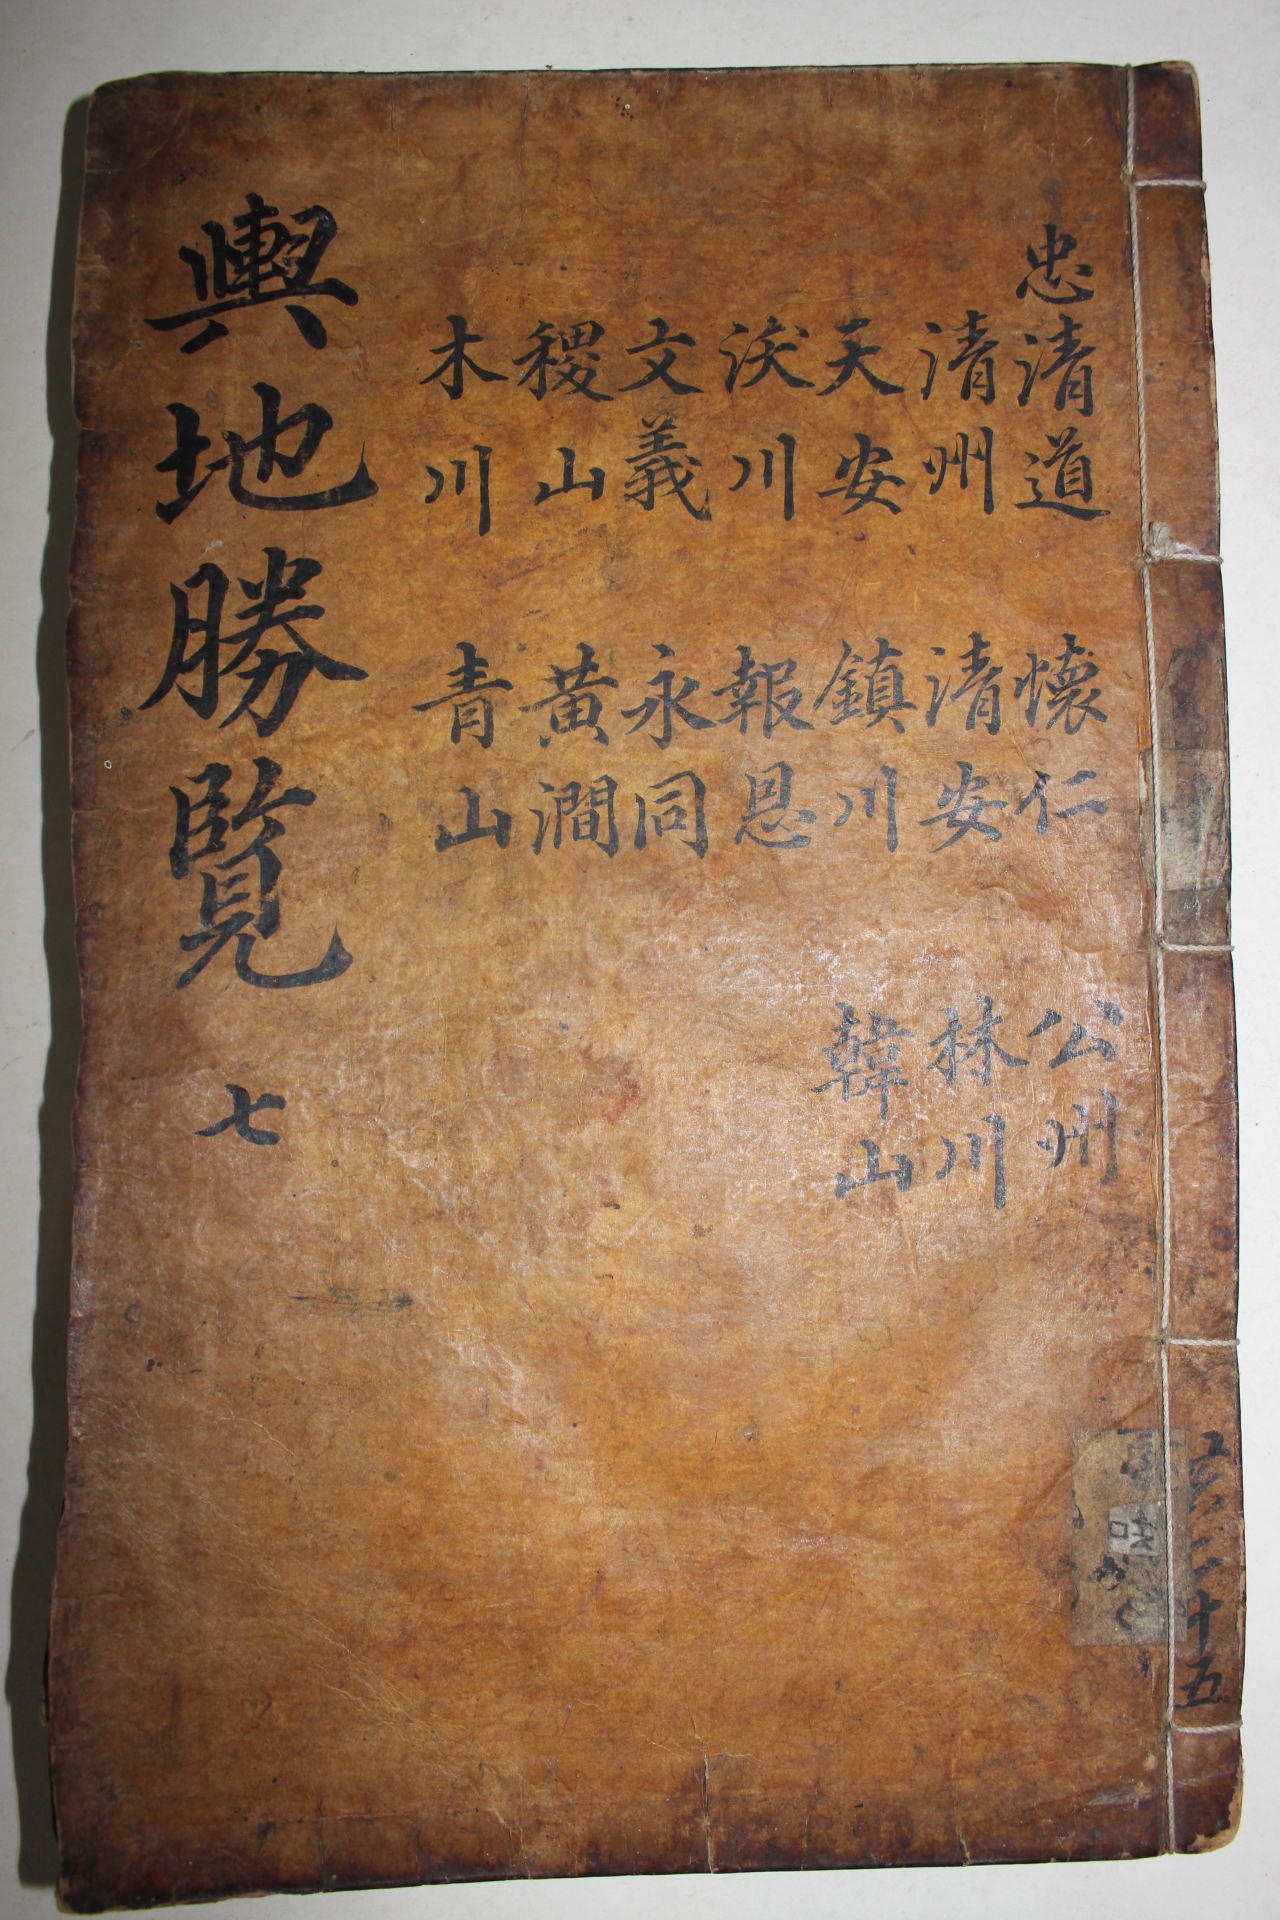 忠清道
清州
天安
沃川
文義
稷山
木川
懷仁
清安
鎮川
報恩
永同
黃澗
青山
公州
林川
韓山
輿地勝覽 七
共二十五